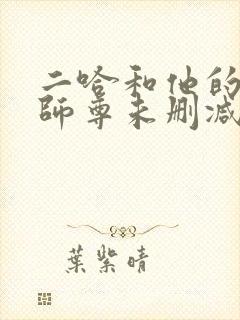 二哈和他的
師尊未刪減
葉紫晴